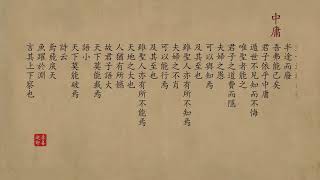 中庸
半塗而廢
吾弗能已矣
君子依乎中庸
遯世不見知而不悔
唯聖者能之
君子之道費而隱
夫婦之愚
可以與知焉
及其至也
雖聖人亦有所不知焉
夫婦之不肖
可以能行焉
及其至也
雖聖人亦有所不能焉
天地之大也
人猶有所憾
故君子語大
天下莫能載焉
語小
天下莫能破焉
詩云
鳶飛戾天
魚躍於淵
言其上下察也